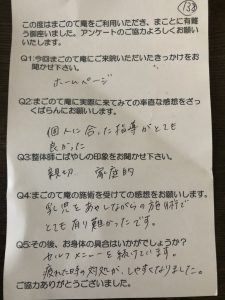 138
この度はまごのて庵をご利用いただき、まことに有難
う御座いました。アンケートのご協力よろしくお願い
いたします。
Q1:今回まごのて庵にご来院いただいたきっかけをお
聞かせ下さい。
ホームページ
Q2:まごのて庵に実際に来てみての率直な感想をざっ
くばらんにお願いします。
個人に合った指導がとても
良かった
Q3:整体師こばやしの印象をお聞かせ下さい。
親切 家庭的
Q4:まごのて庵の施術を受けての感想をお願いします。
乳児をあやしながらの施術で
とても有り難かったです。
Q5:その後、お身体の具合はいかがでしょうか?
セルフメニューを続けています。
疲れた時の対処が、しやすくなりました。
ご協力ありがとうございました。